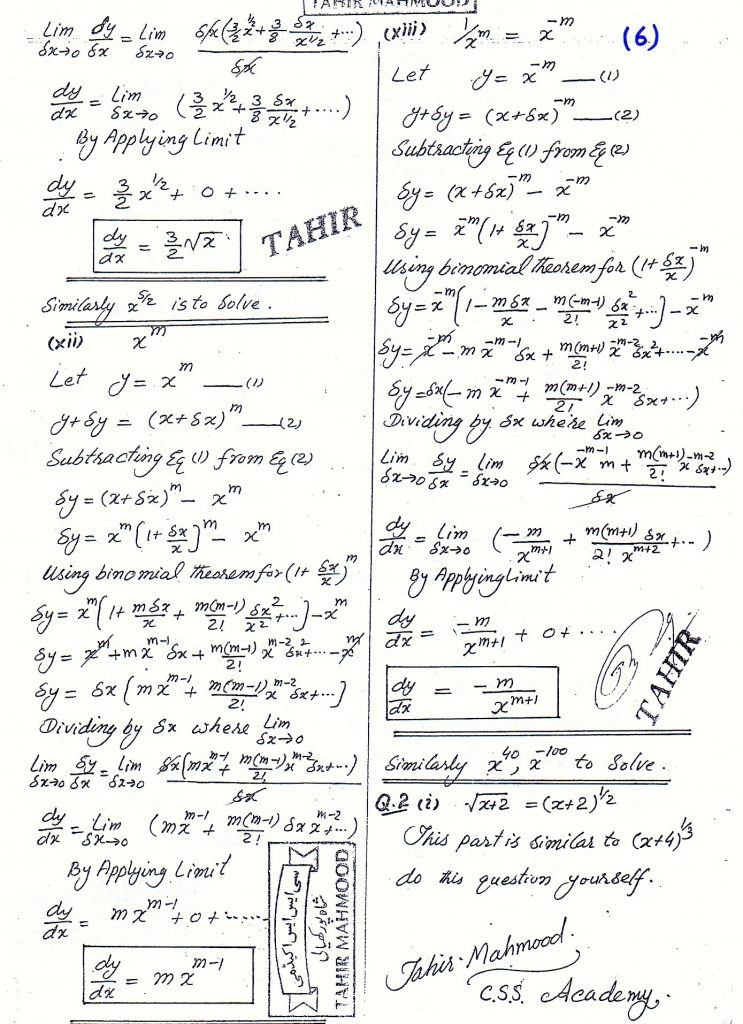 TAHIR MAHMOOD
Lim δx→0 δy/δx = Lim δx→0 δx(3/2 x^1/2 + 3/8 δx/x^1/2 + ...)/δx
dy/dx = Lim δx→0 (3/2 x^1/2 + 3/8 δx/x^1/2 + ....)
By Applying Limit
dy/dx = 3/2 x^1/2 + 0 + ....
dy/dx = 3/2 √x
TAHIR
Similarly x^5/2 is to Solve.
(xii) x^m
Let y = x^m —(1)
y+δy = (x+δx)^m —(2)
Subtracting Eq(1) from Eq(2)
δy = (x+δx)^m - x^m
δy = x^m [1+ δx/x]^m - x^m
Using binomial theorem for (1+ δx/x)^m
δy = x^m [1+ mδx/x + m(m-1)/2! δx²/x² + ...] - x^m
δy = x^m + m x^m-1 δx + m(m-1)/2! x^m-2 δx² + ... - x^m
δy = δx [m x^m-1 + m(m-1)/2! x^m-2 δx + ...]
Dividing by δx where Lim δx→0
Lim δx→0 δy/δx = Lim δx→0 δx(m x^m-1 + m(m-1)/2! x^m-2 δx + ...)/δx
dy/dx = Lim δx→0 (m x^m-1 + m(m-1)/2! δx x^m-2 + ...)
By Applying Limit
dy/dx = m x^m-1 + 0 + ......
dy/dx = m x^m-1
سی ایس ایس اکیڈمی
TAHIR MAHMOOD
(xiii) 1/x^m = x^-m
(6)
Let y = x^-m —(1)
y+δy = (x+δx)^-m —(2)
Subtracting Eq(1) from Eq(2)
δy = (x+δx)^-m - x^-m
δy = x^-m [1+ δx/x]^-m - x^-m
Using binomial theorem for (1+ δx/x)^-m
δy = x^-m [1 - mδx/x - m(-m-1)/2! δx²/x² + ...] - x^-m
δy = x^-m - m x^-m-1 δx + m(m+1)/2! x^-m-2 δx² + ..... - x^-m
δy = δx(-m x^-m-1 + m(m+1)/2! x^-m-2 δx + ...)
Dividing by δx where Lim δx→0
Lim δx→0 δy/δx = Lim δx→0 δx(-x^-m-1 m + m(m+1)/2! x^-m-2 δx + ...)/δx
dy/dx = Lim δx→0 (-m/x^m+1 + m(m+1)/2! δx/x^m+2 + ...)
By Applying Limit
dy/dx = -m/x^m+1 + 0 + .....
dy/dx = -m/x^m+1
TAHIR
Similarly x^40, x^-100 to Solve.
Q.2 (i) √x+2 = (x+2)^1/2
This part is similar to (x+4)^1/3
do this question yourself.
Tahir Mahmood.
C.S.S. Academy.